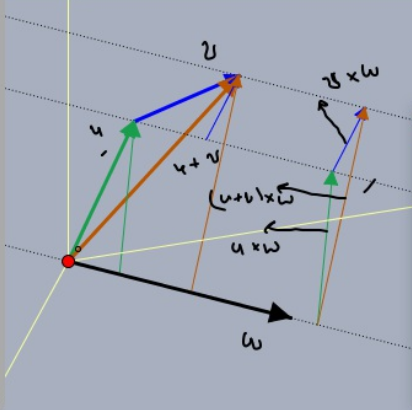 v
v × w
u
u + v
(u+v)×w
u × w
w